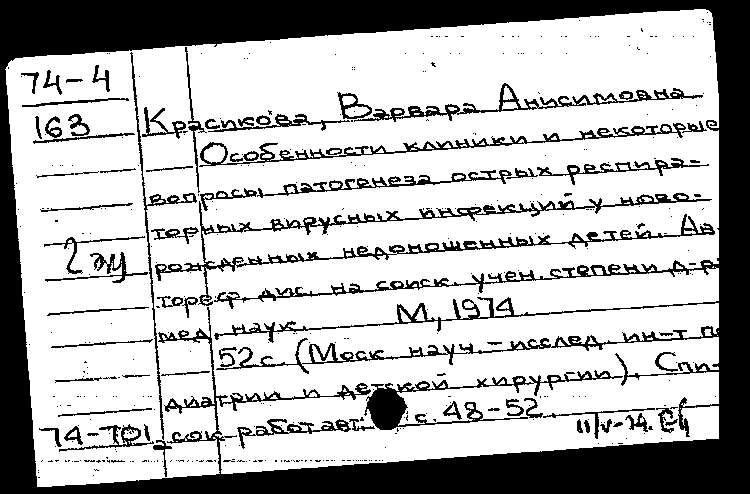 74-4
163 Красикова, Варвара Анисимовна
Особенности клиники и некоторые
вопросы патогенеза острых респира-
торных вирусных инфекций у ново-
2 эк
рожденных недоношенных детей. Ав-
тореф. дис. на соиск. учен. степени д-ра
мед. наук. М., 1974.
52 с. (Моск. науч.-исслед. ин-т пе
диатрии и детской хирургии). Спи-
74-701 сок работ авт.: с. 48-52.
11/V-74.